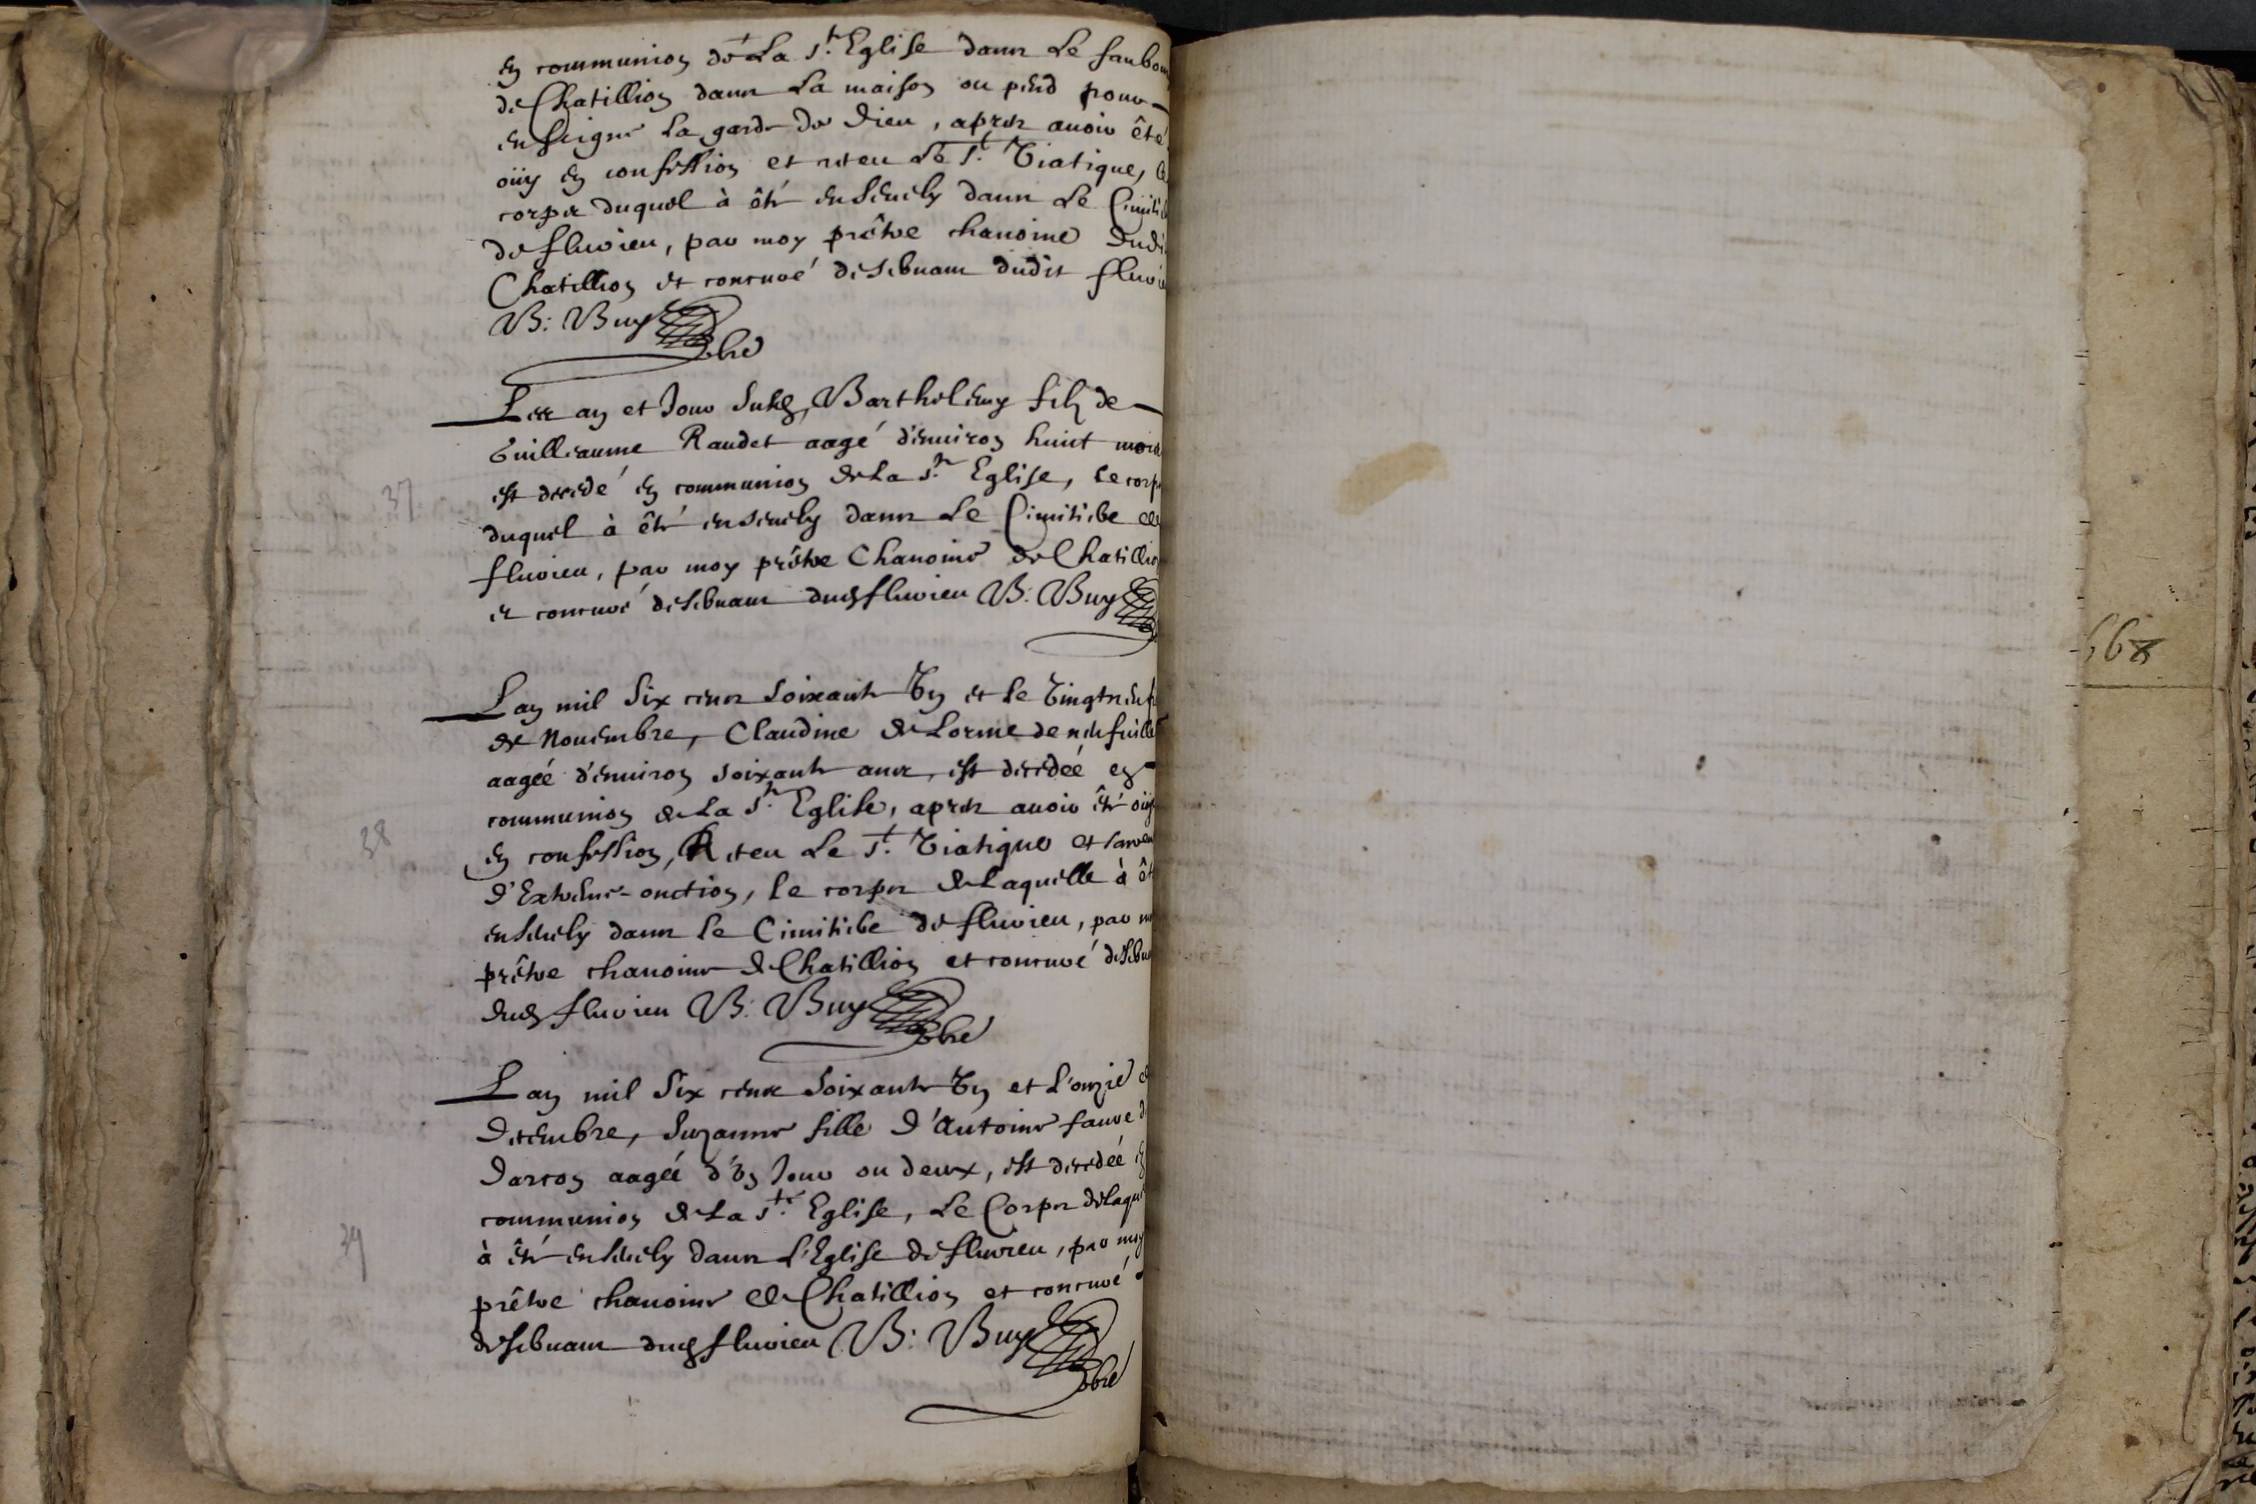 en communion de La Ste Eglise dans Le faubour
de Chatillion dans La maison ou pend pour
enseigne La garde de Dieu, apres auoir été
oüy en confession et receu Le St. Viatique, Le
corps duquel à êté enseuely dans Le Cimiti
de fluvieu, par moy prêtre chanoine dudi
Chatillion et concuré deservant dudit fluvie
B: Buys
pbre
Les an et Jour susd, Bartholemy filz de
Guilleaume Raudet aagé d'enuiron huict mois
est decedé en communion de La Ste Eglise, Le corps
duquel à êté enseuely dans Le Cimitiere de
37
fluvieu, par moy prêtre Chanoine de Chatillion
et concuré deservant dud fluvieu B: Buys
Lan mil Six cens soixante Vn et Le Vingtneuf
de Nouembre, Claudine de Lorme de
aagéé d'enuiron soixante ans, est decedéé en
communion de La Ste Eglise, apres auoir êté oüye
38
en confession, Receu Le St. Viatique et
d'Extreme-onction, Le corps de Laquelle à êt
enseuely dans Le Cimitiere de fluvieu, par m
prêtre chanoine de Chatillion et concuré deserv
dud fluvieu B: Buys
pbre
Lan mil Six cens Soixante Vn et L'onzie de
Decembre, Suzanne fille d'Antoine faure d
Darcon aagéé d'Vn Jour ou deux, est decedéé en
communion de La Ste Eglise, Le Corps de Laque
39
à êté enseuely dans L'Eglise de fluvieu, par moy
prêtre chanoine de Chatillion et concuré
deservant dud fluvieu B: Buys
pbre
668